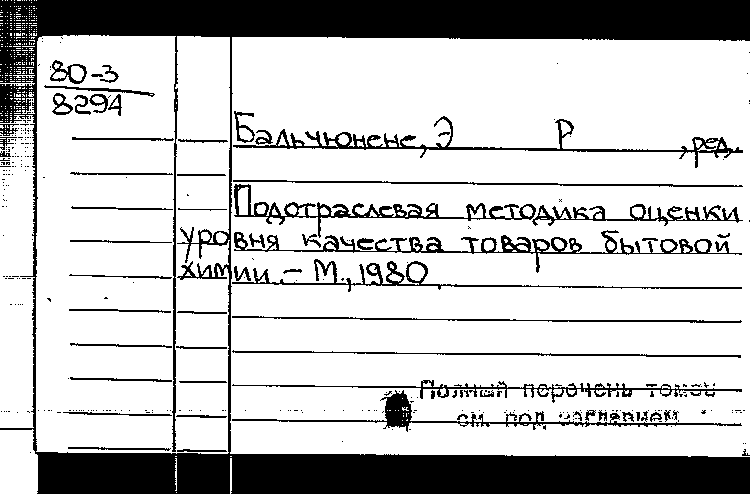 80-3
8294
Бальчюнене, Э Р , ред.
Подотраслевая методика оценки
уровня качества товаров бытовой
химии. – М., 1980.
Полный перечень томов
см. под заглавием